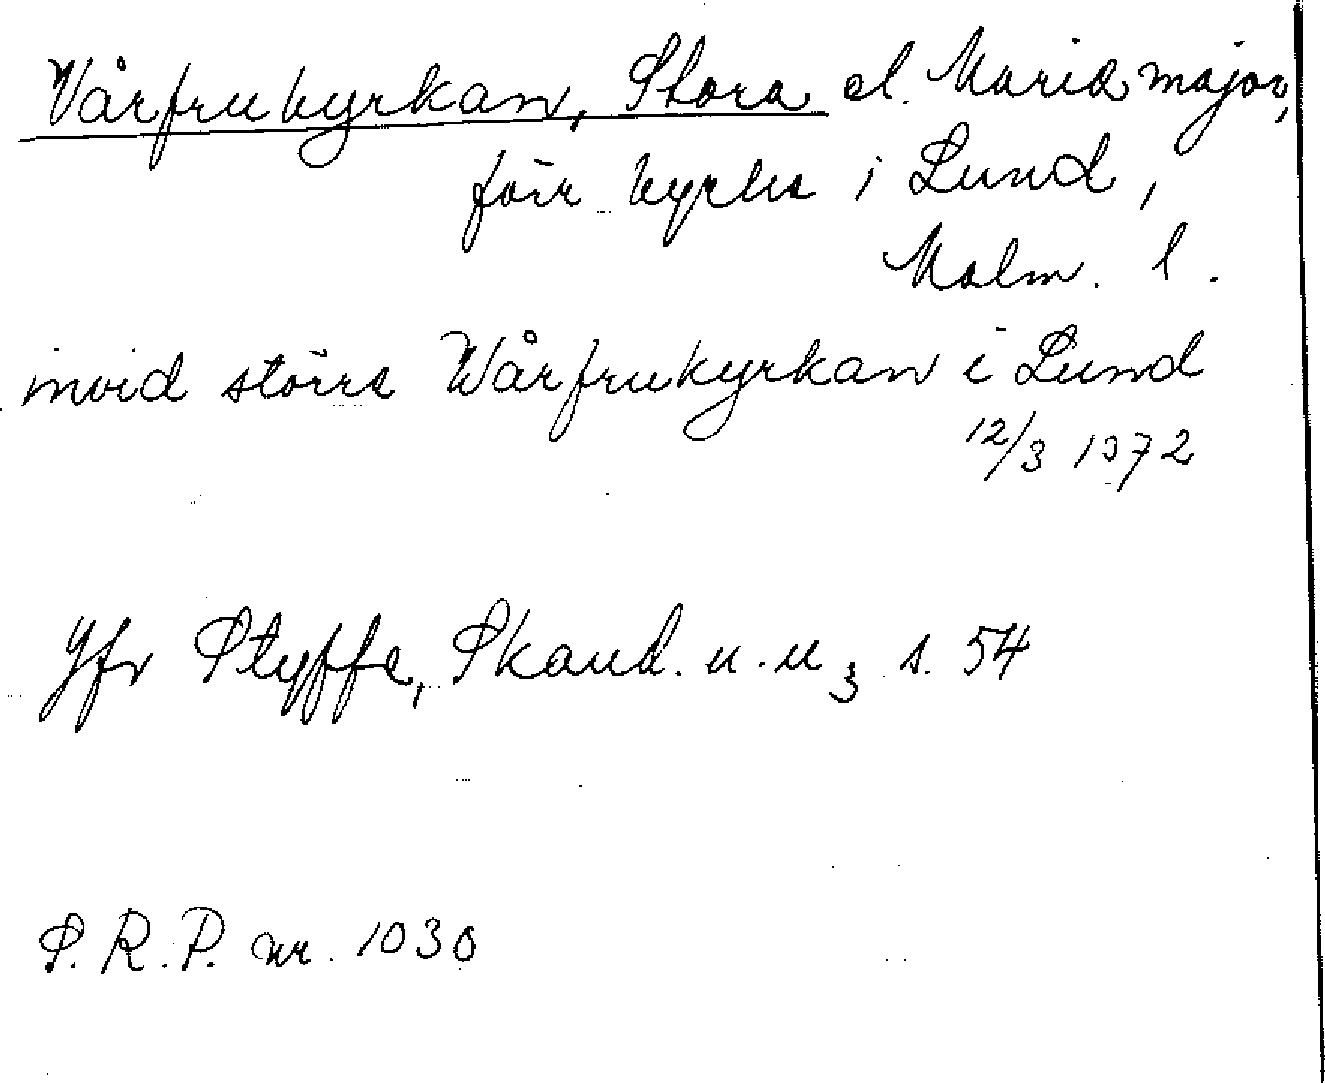 Vårfrukyrkan, Stora el. Maria major,
förr kyrka i Lund,
Malm. l.
invid större Wårfrukyrkan i Lund
12/3 1372
Jfr Styffe, Skand. u. u3 s. 54
S. R. P. nr. 1030